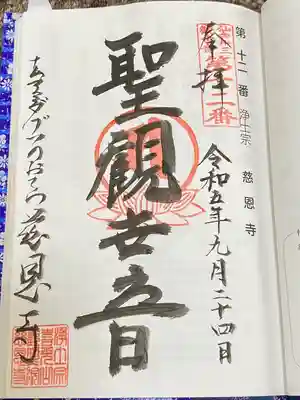 第十二番 浄土宗 慈恩寺
第十二番
奉拝
令和五年九月二十四日
聖觀世音
慈恩寺